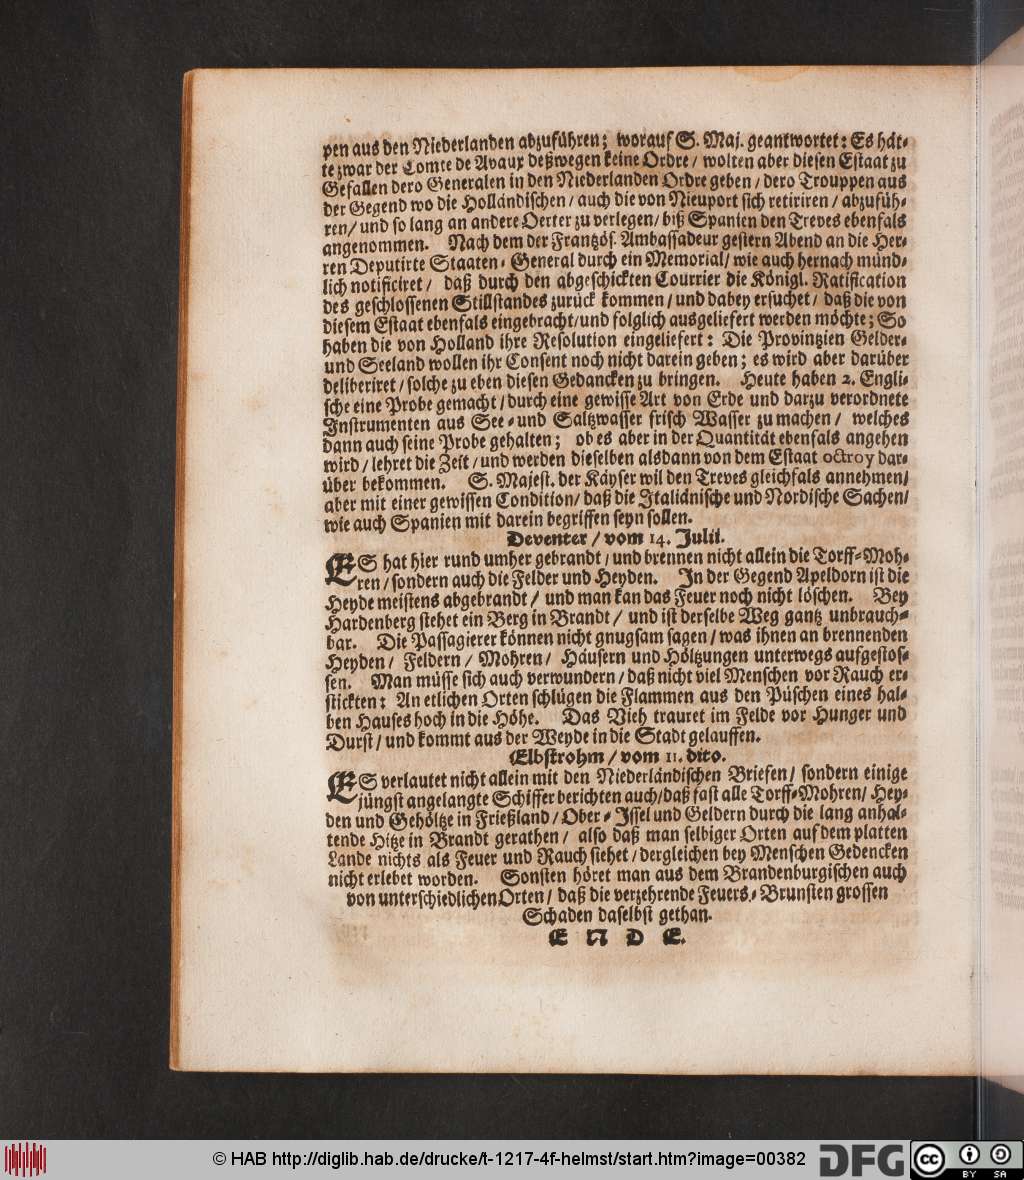 pen aus den Niederlanden abzuführen; worauf S. Maj. geantwortet: Es hät-
te zwar der Comte de Avaux deßwegen keine Ordre / wolten aber diesen Estaat zu
Gefallen dero Generalen in den Niederlanden Ordre geben / dero Trouppen aus
der Gegend wo die Holländischen / auch die von Nieuport sich retiriren / abzufüh-
ren / und so lang an andere Oerter zu verlegen / biß Spanien den Treves ebenfals
angenommen. Nach dem der Frantzös. Ambassadeur gestern Abend an die Her-
ren Deputirte Staaten-General durch ein Memorial / wie auch hernach münd-
lich notificiret / daß durch den abgeschickten Courrier die Königl. Ratification
des geschlossenen Stillstandes zurück kommen / und dabey ersuchet / daß die von
diesem Estaat ebenfals eingebracht / und folglich ausgeliefert werden möchte; So
haben die von Holland ihre Resolution eingeliefert: Die Provintzien Gelder-
und Seeland wollen ihr Consent noch nicht darein geben; es wird aber darüber
deliberiret / solche zu eben diesen Gedancken zu bringen. Heute haben 2. Engli-
sche eine Probe gemacht / durch eine gewisse Art von Erde und darzu verordnete
Instrumenten aus See- und Saltzwasser frisch Wasser zu machen / welches
dann auch seine Probe gehalten; ob es aber in der Quantität ebenfals angehen
wird / lehret die Zeit / und werden dieselben alsdann von dem Estaat octroy dar-
über bekommen. S. Majest. der Käyser wil den Treves gleichfals annehmen /
aber mit einer gewissen Condition / daß die Italiänische und Nordische Sachen /
wie auch Spanien mit darein begriffen seyn sollen.
Deventer / vom 14. Julii.
ES hat hier rund umher gebrandt / und brennen nicht allein die Torff-Moh-
ren / sondern auch die Felder und Heyden. In der Gegend Apeldorn ist die
Heyde meistens abgebrandt / und man kan das Feuer noch nicht löschen. Bey
Hardenberg stehet ein Berg in Brandt / und ist derselbe Weg gantz unbrauch-
bar. Die Passagierer können nicht gnugsam sagen / was ihnen an brennenden
Heyden / Feldern / Mohren / Häusern und Höltzungen unterwegs aufgestos-
sen. Man müsse sich auch verwundern / daß nicht viel Menschen vor Rauch er-
stickten: An etlichen Orten schlügen die Flammen aus den Püschen eines hal-
ben Hauses hoch in die Höhe. Das Vieh trauret im Felde vor Hunger und
Durst / und kommt aus der Weyde in die Stadt gelauffen.
Elbstrohm / vom 11. dito.
ES verlautet nicht allein mit den Niederländischen Briefen / sondern einige
jüngst angelangte Schiffer berichten auch / daß fast alle Torff-Mohren / Hey-
den und Gehöltze in Frießland / Ober-Issel und Geldern durch die lang anhal-
tende Hitze in Brandt gerathen / also daß man selbiger Orten auf dem platten
Lande nichts als Feuer und Rauch siehet / dergleichen bey Menschen Gedencken
nicht erlebet worden. Sonsten höret man aus dem Brandenburgischen auch
von unterschiedlichen Orten / daß die verzehrende Feuers-Brunsten grossen
Schaden daselbst gethan.
E N D E.
© HAB http://diglib.hab.de/drucke/t-1217-4f-helmst/start.htm?image=00382
DFG
cc BY SA